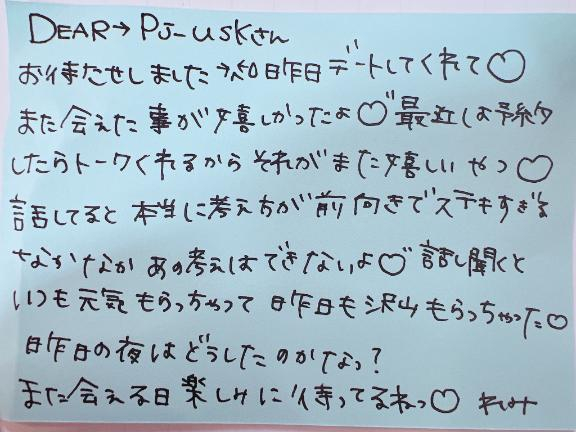 DEAR→ PJ-uskさん
お待たせしました→ 昨日デートしてくれて♡
また会えた事が嬉しかったよ♡最近は予約
したらトークくれるからそれがまた嬉しいやつ♡
話してると本当に考え方が前向きでステキすぎる
なかなかあの考えはできないよ♡話し聞くと
いつも元気もらっちゃって昨日も沢山もらっちゃった♡
昨日の夜はどうしたのかなっ?
また会える日楽しみに待ってるねっ♡